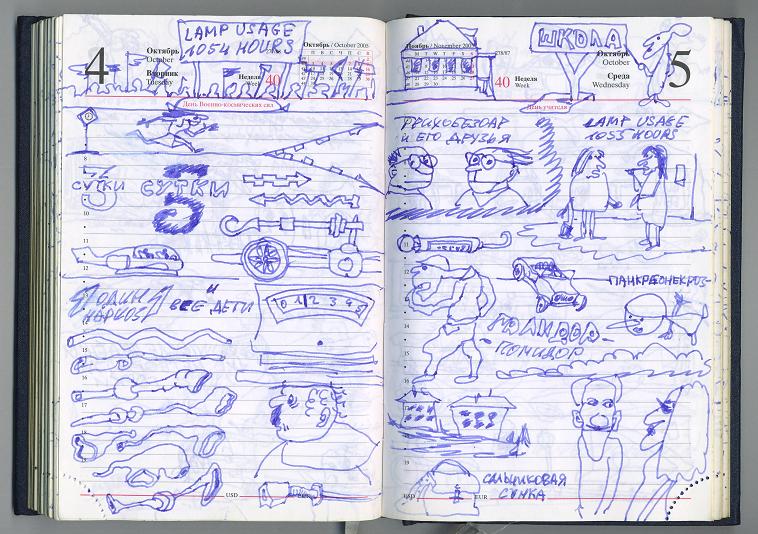 4
Октябрь
October
Вторник
Tuesday
LAMP USAGE
1054 HOURS
Неделя
Week
40
Октябрь / October 2005
День Военно-космических сил
3
СУТКИ
СУТКИ
3
8
10
11
12
ОДИН
НАРКОЗ
И
ВСЕ ДЕТИ
0 1 2 3 4 5
15
16
17
18
USD
Ноябрь / November 2005
278/87
40
Неделя
Week
ШКОЛА
Октябрь
October
Среда
Wednesday
5
День учителя
И ЕГО ДРУЗЬЯ
LAMP USAGE
1055 HOURS
11
12
ПАНКРЕОНЕКРОЗ-
-ПОМИДОР
14
15
16
19
СУМКА
USD
EUR